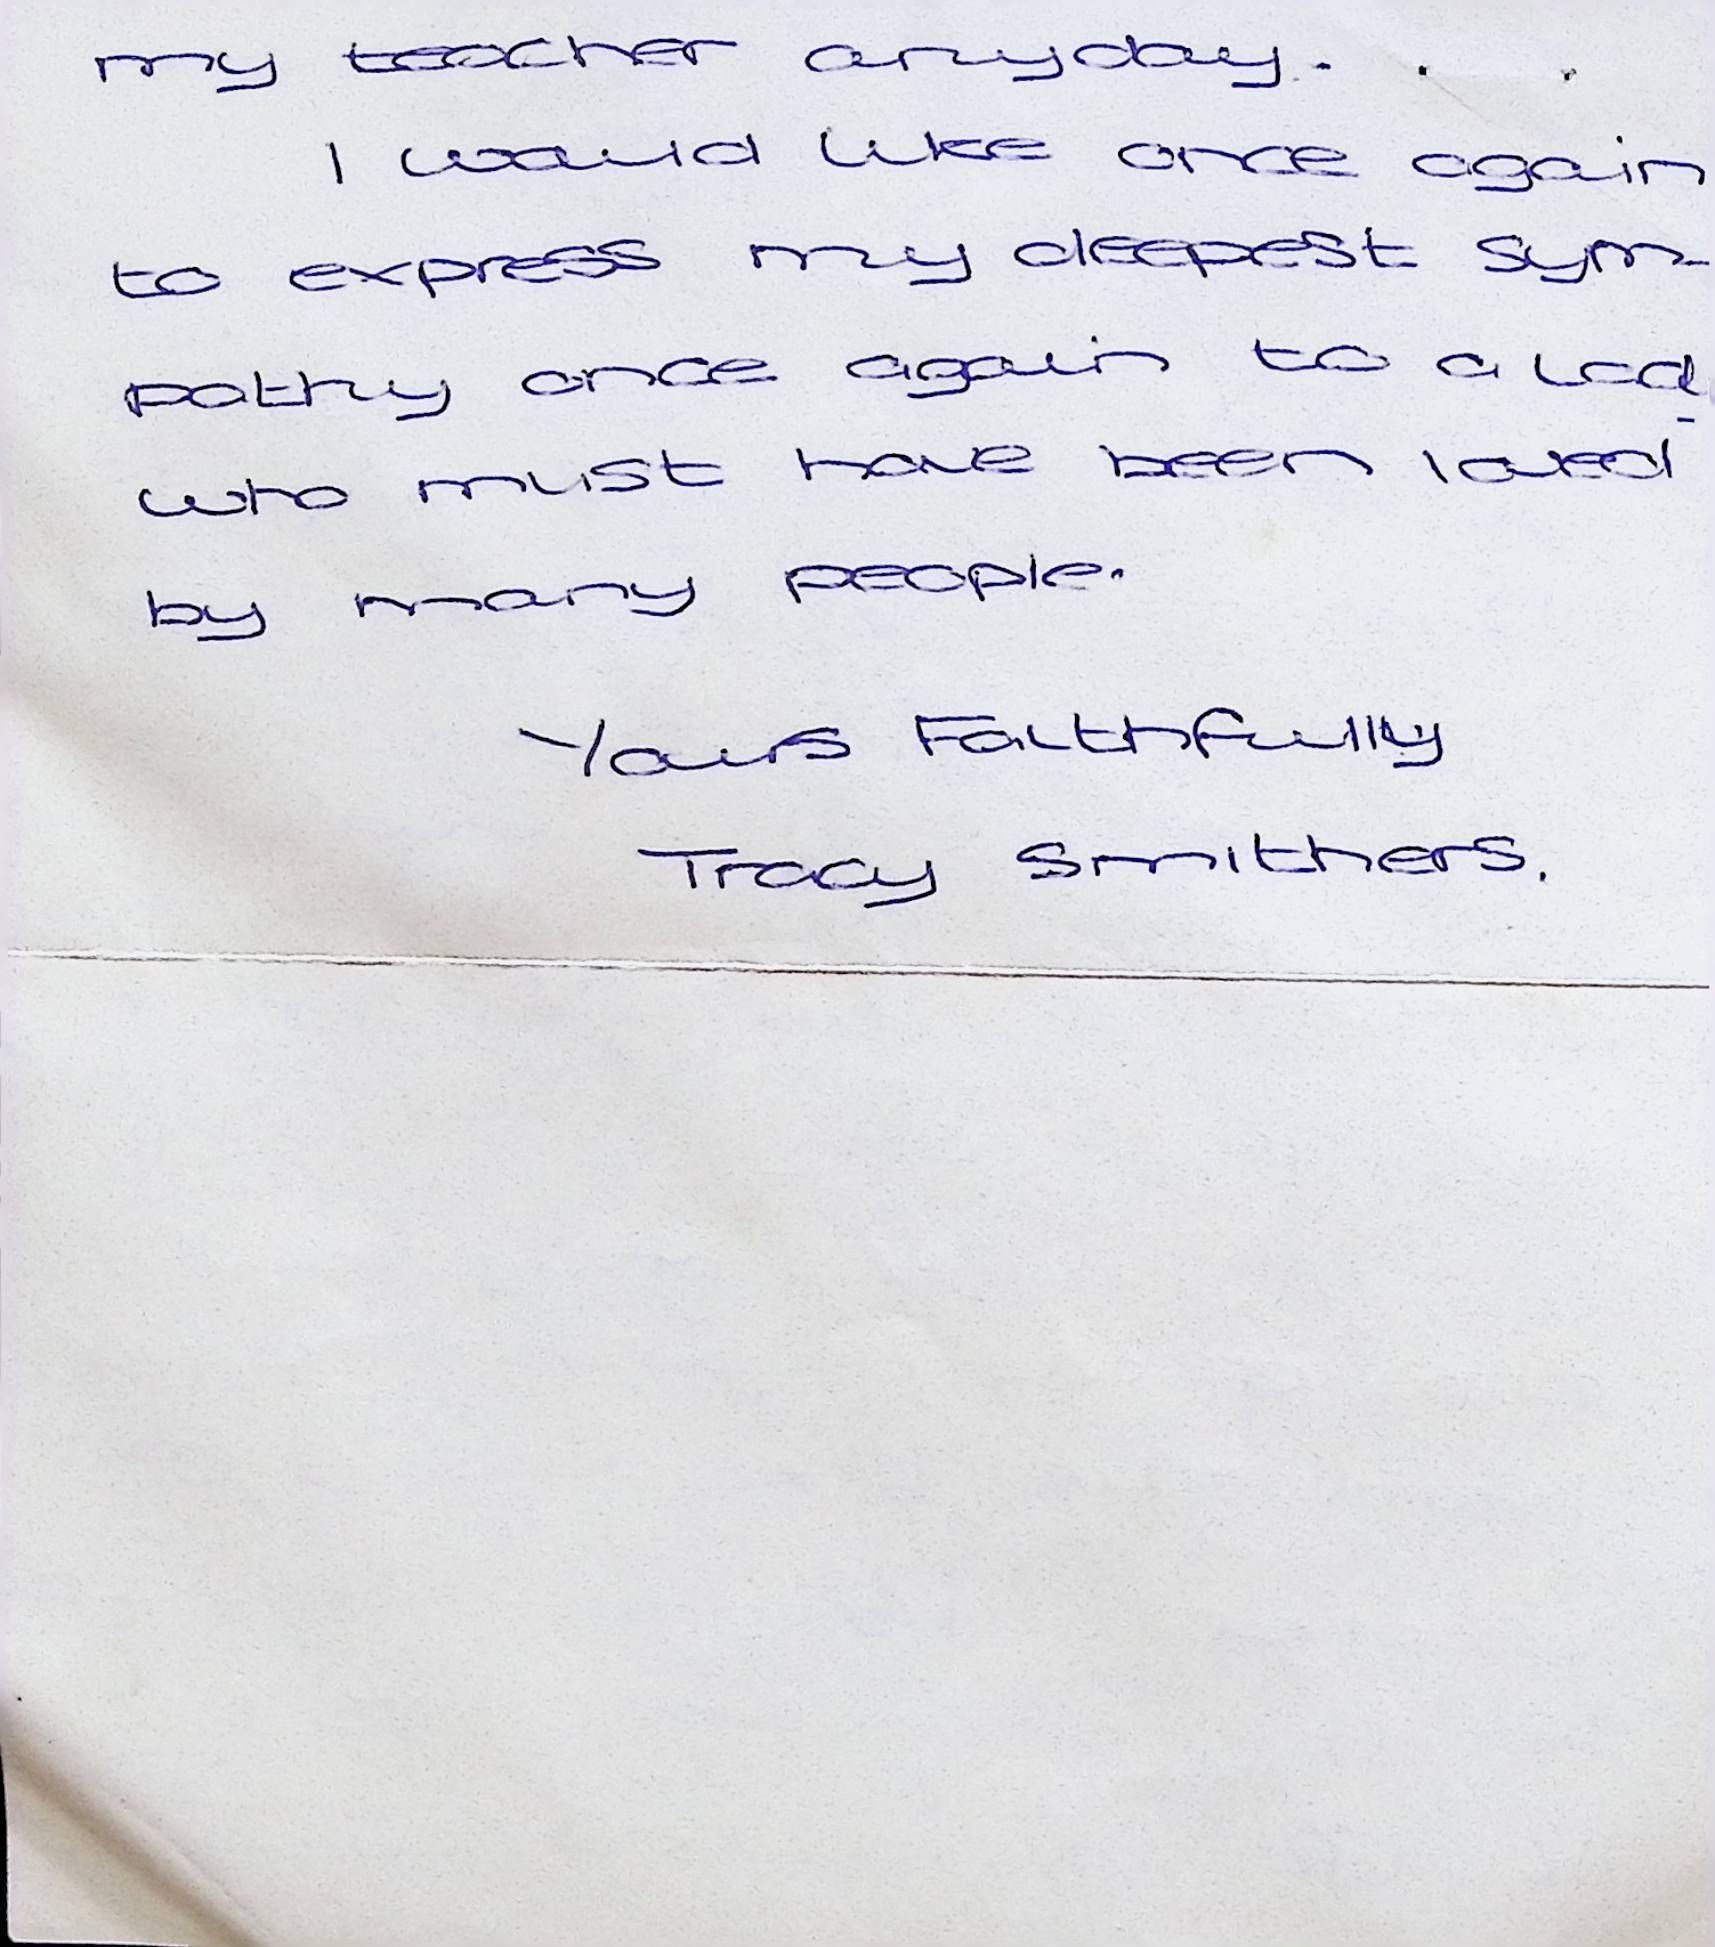 my teacher anyday.
I would like once again
to express my deepest sym-
pathy once again to a lad
who must have been loved
by many people.
Yours Faithfully
Tracy Smithers.